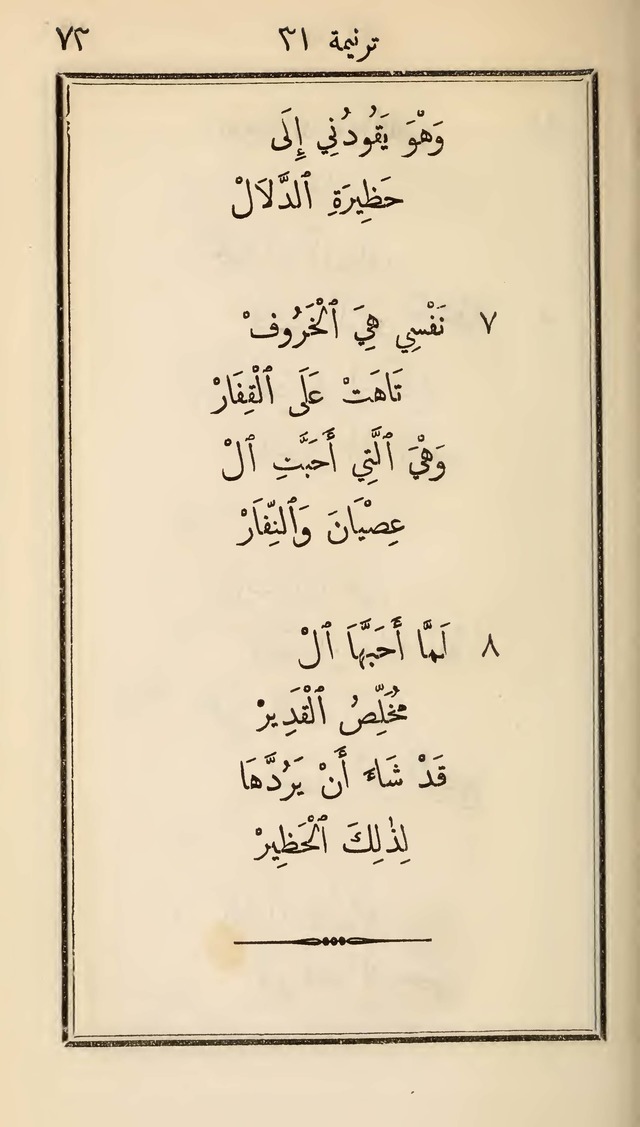 ترنيمة ٣١ ٧٣
وَهْوَ يَقُودُنِي إِلَى
حَظِيرَةِ ٱلدَّلَالْ
٧ نَفْسِي هِيَ ٱلْخَرُوفْ
تَاهَتْ عَلَى ٱلْقِفَارْ
وَهْيَ ٱلَّتِي أَحَبَّتِ ٱلْ
عِصْيَانَ وَٱلنِّفَارْ
٨ لَمَّا أَحَبَّهَا ٱلْ
مُخَلِّصُ ٱلْقَدِيرْ
قَدْ شَاءَ أَنْ يَرُدَّهَا
لِذٰلِكَ ٱلْحَظِيرْ